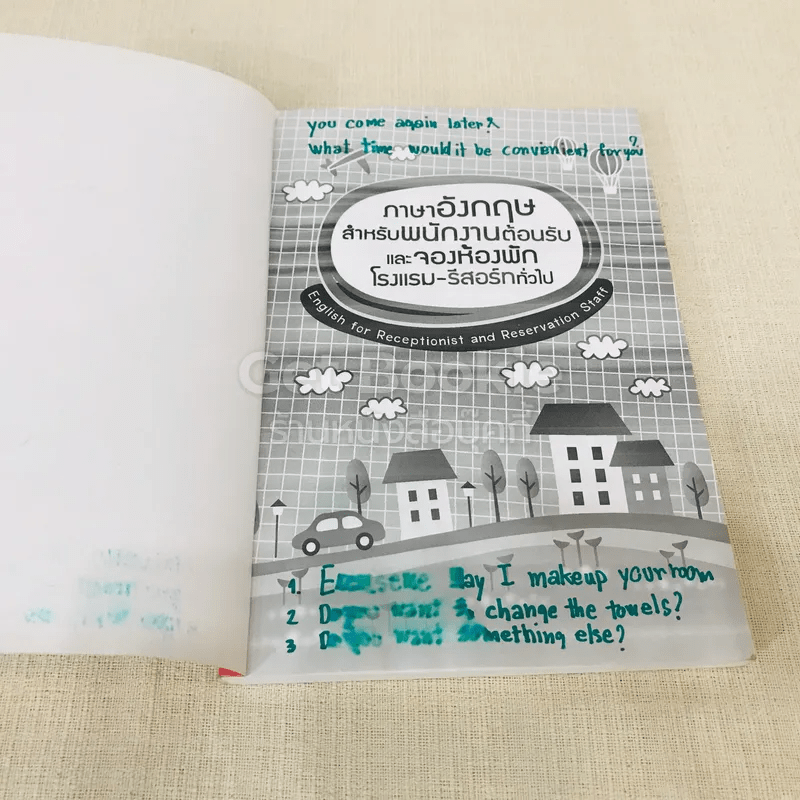 you come again later?
what time would it be convienient for you?
ภาษาอังกฤษ
สำหรับพนักงานต้อนรับ
และจองห้องพัก
โรงแรม-รีสอร์ททั่วไป
English for Receptionist and Reservation Staff
ร้านหนังสือบุ๊คกี้
1. I makeup your room
2 want change the towels?
3 want something else?